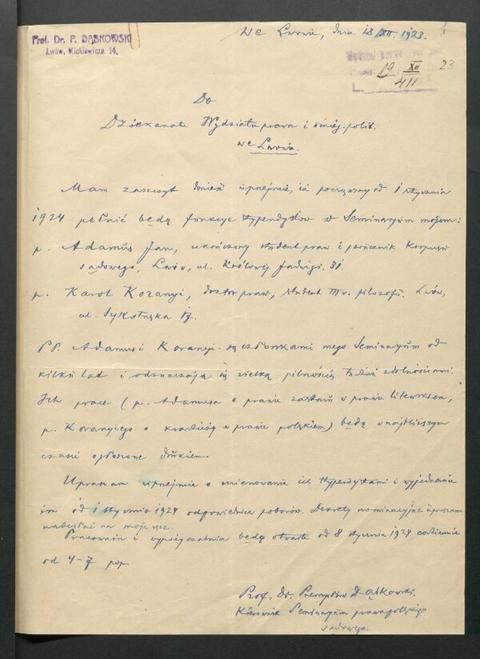 Prof. Dr. P. DĄBKOWSKI
Lwów, Mickiewicza 14.
We Lwowie, dnia 18 XII. 1923.
19 XII 23
411
Do
Dziekanatu Wydziału prawa i umiej. polit.
we Lwowie
Mam zaszczyt donieść uprzejmie, iż począwszy od 1 stycznia
1924 pełnić będą funkcje stypendystów w Seminaryum mojem:
p. Adamus Jan, ukończony student praw i porucznik Korpusu
sądowego, Lwów, ul. Królowej Jadwigi 31
p. Karol Koranyi, doktor praw, student III r. filozofii, Lwów,
ul. Sykstuska 17.
PP. Adamus i Koranyi są członkami mego Seminaryum od
kilku lat i odznaczają się wielką pilnością tudzież zdolnościami.
Ich prace (p. Adamusa o prawie zastawu w prawie litewskiem,
p. Koranyiego o kradzieży w prawie polskiem) będą w najbliższym
czasie ogłoszone drukiem.
Upraszam uprzejmie o mianowanie ich stypendystami i wyjednanie
im od 1 stycznia 1924 odpowiednich poborów. Dekrety nominacyjne upraszam
nadesłać na moje ręce.
Pracownia i wypożyczalnia będą otwarte od 8 stycznia 1924 codziennie
od 4-7 pop.
Prof. Dr. Przemysław Dąbkowski
Kierownik Seminaryum prawa polskiego
sądowego.